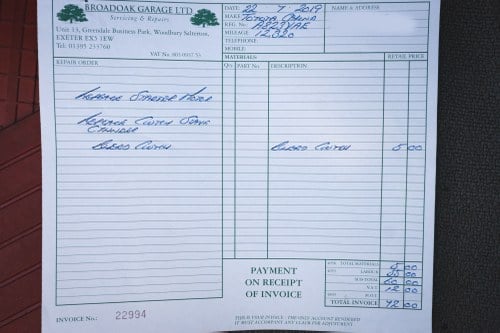 BROADOAK GARAGE LTD
Servicing & Repairs
Unit 13, Greendale Business Park, Woodbury Salterton,
EXETER EX5 1EW
Tel: 01395 233760
VAT No.
DATE 22 7 2019
MAKE TOYOTA
REG. No.
MILEAGE 12,320
TELEPHONE:
MOBILE:
NAME & ADDRESS
REPAIR ORDER
MATERIALS
Qty PART No. DESCRIPTION
RETAIL PRICE
REPLACE STARTER MOTOR
REPLACE CLUTCH SLAVE
CYLINDER
BLEED CLUTCH
BLEED CLUTCH 5 00
PAYMENT
ON RECEIPT
OF INVOICE
TOTAL MATERIALS 5 00
LABOUR 00
SUB-TOTAL 60 00
V.A.T. 12 00
M.O.T.
TOTAL INVOICE 00
INVOICE No.: 22994
THIS IS YOUR INVOICE - THE ONLY ACCOUNT RENDERED
IT MUST ACCOMPANY ANY CLAIM FOR ADJUSTMENT